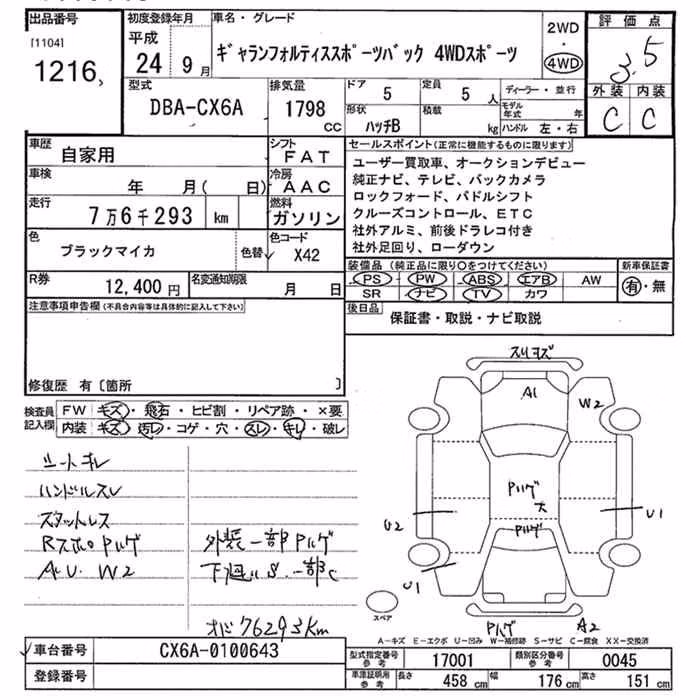 出品番号 初度登録年月 車名・グレード 2WD 評価点
[1104] 平成 ・
1216 24年 9月 ギャランフォルティススポーツバック 4WDスポーツ 4WD 3.5
型式 排気量 ドア 定員 ディーラー・並行 外装 内装
DBA-CX6A 1798 CC 5 5 人 モデル年式 年 C C
形状 積載 ハンドル 左・右
ハッチB kg
車歴 自家用 シフト FAT セールスポイント(正常に機能するものに限ります)
車検 年 月( 日) 冷房 AAC ユーザー買取車、オークションデビュー
純正ナビ、テレビ、バックカメラ
走行 7万6千293 km 燃料 ガソリン ロックフォード、パドルシフト
クルーズコントロール、ETC
色 ブラックマイカ 色替 色コード X42 社外アルミ、前後ドラレコ付き
社外足回り、ローダウン
R券 12,400円 名変通知期限 月 日 装備品(純正品に限り○をつけてください) 新車保証書
PS PW ABS エアB AW 有・無
SR ナビ TV カワ
注意事項申告欄(不具合内容等は具体的に記入して下さい) 後日品 保証書・取説・ナビ取説
修復歴 有〔箇所 〕
検査員記入欄 FW キズ・飛石・ヒビ割・リペア跡・×要
内装 キズ・汚レ・コゲ・穴・スレ・キレ・破レ
シートキレ
ハンドルスレ
スタットレス
Rスポロ Pハゲ 外装一部Pハゲ
AU. W2 下廻りS.一部C
オド76293km
スリキズ
A1
W2
Pハゲ
大
Pハゲ
U2
U1
U1
スペア
Pハゲ A2
A-キズ E-エクボ U-凹み W-補修跡 S-サビ C-腐食 XX-交換済
車台番号 CX6A-0100643 型式指定番号 参考 17001 類別区分番号 参考 0045
登録番号 車庫証明用 参考 長さ 458 cm 幅 176 cm 高さ 151 cm